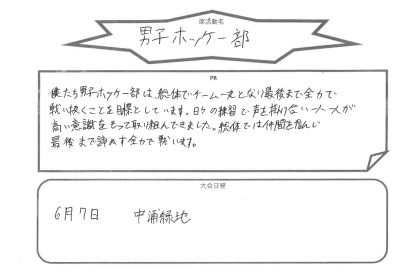 部活動名
男子ホッケー部
PR
僕たち男子ホッケー部は、総体でチーム一丸となり最後まで全力で
戦い抜くことを目標としています。日々の練習で声を掛け合い一人一人が
高い意識をもって取り組んできました。総体では仲間を信じ
最後まで諦めず全力で戦います。
大会日程
6月7日 中浦緑地